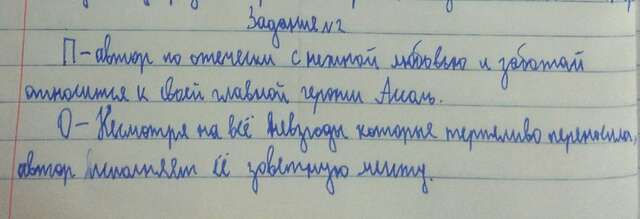 Задание №2
П – автор по отечески с нежной любовью и заботай
относится к своей главной героини Ассоль.
О – Несмотря на всё невзгоды которые терпеливо переносила,
автор исполняет её заветную мечту.